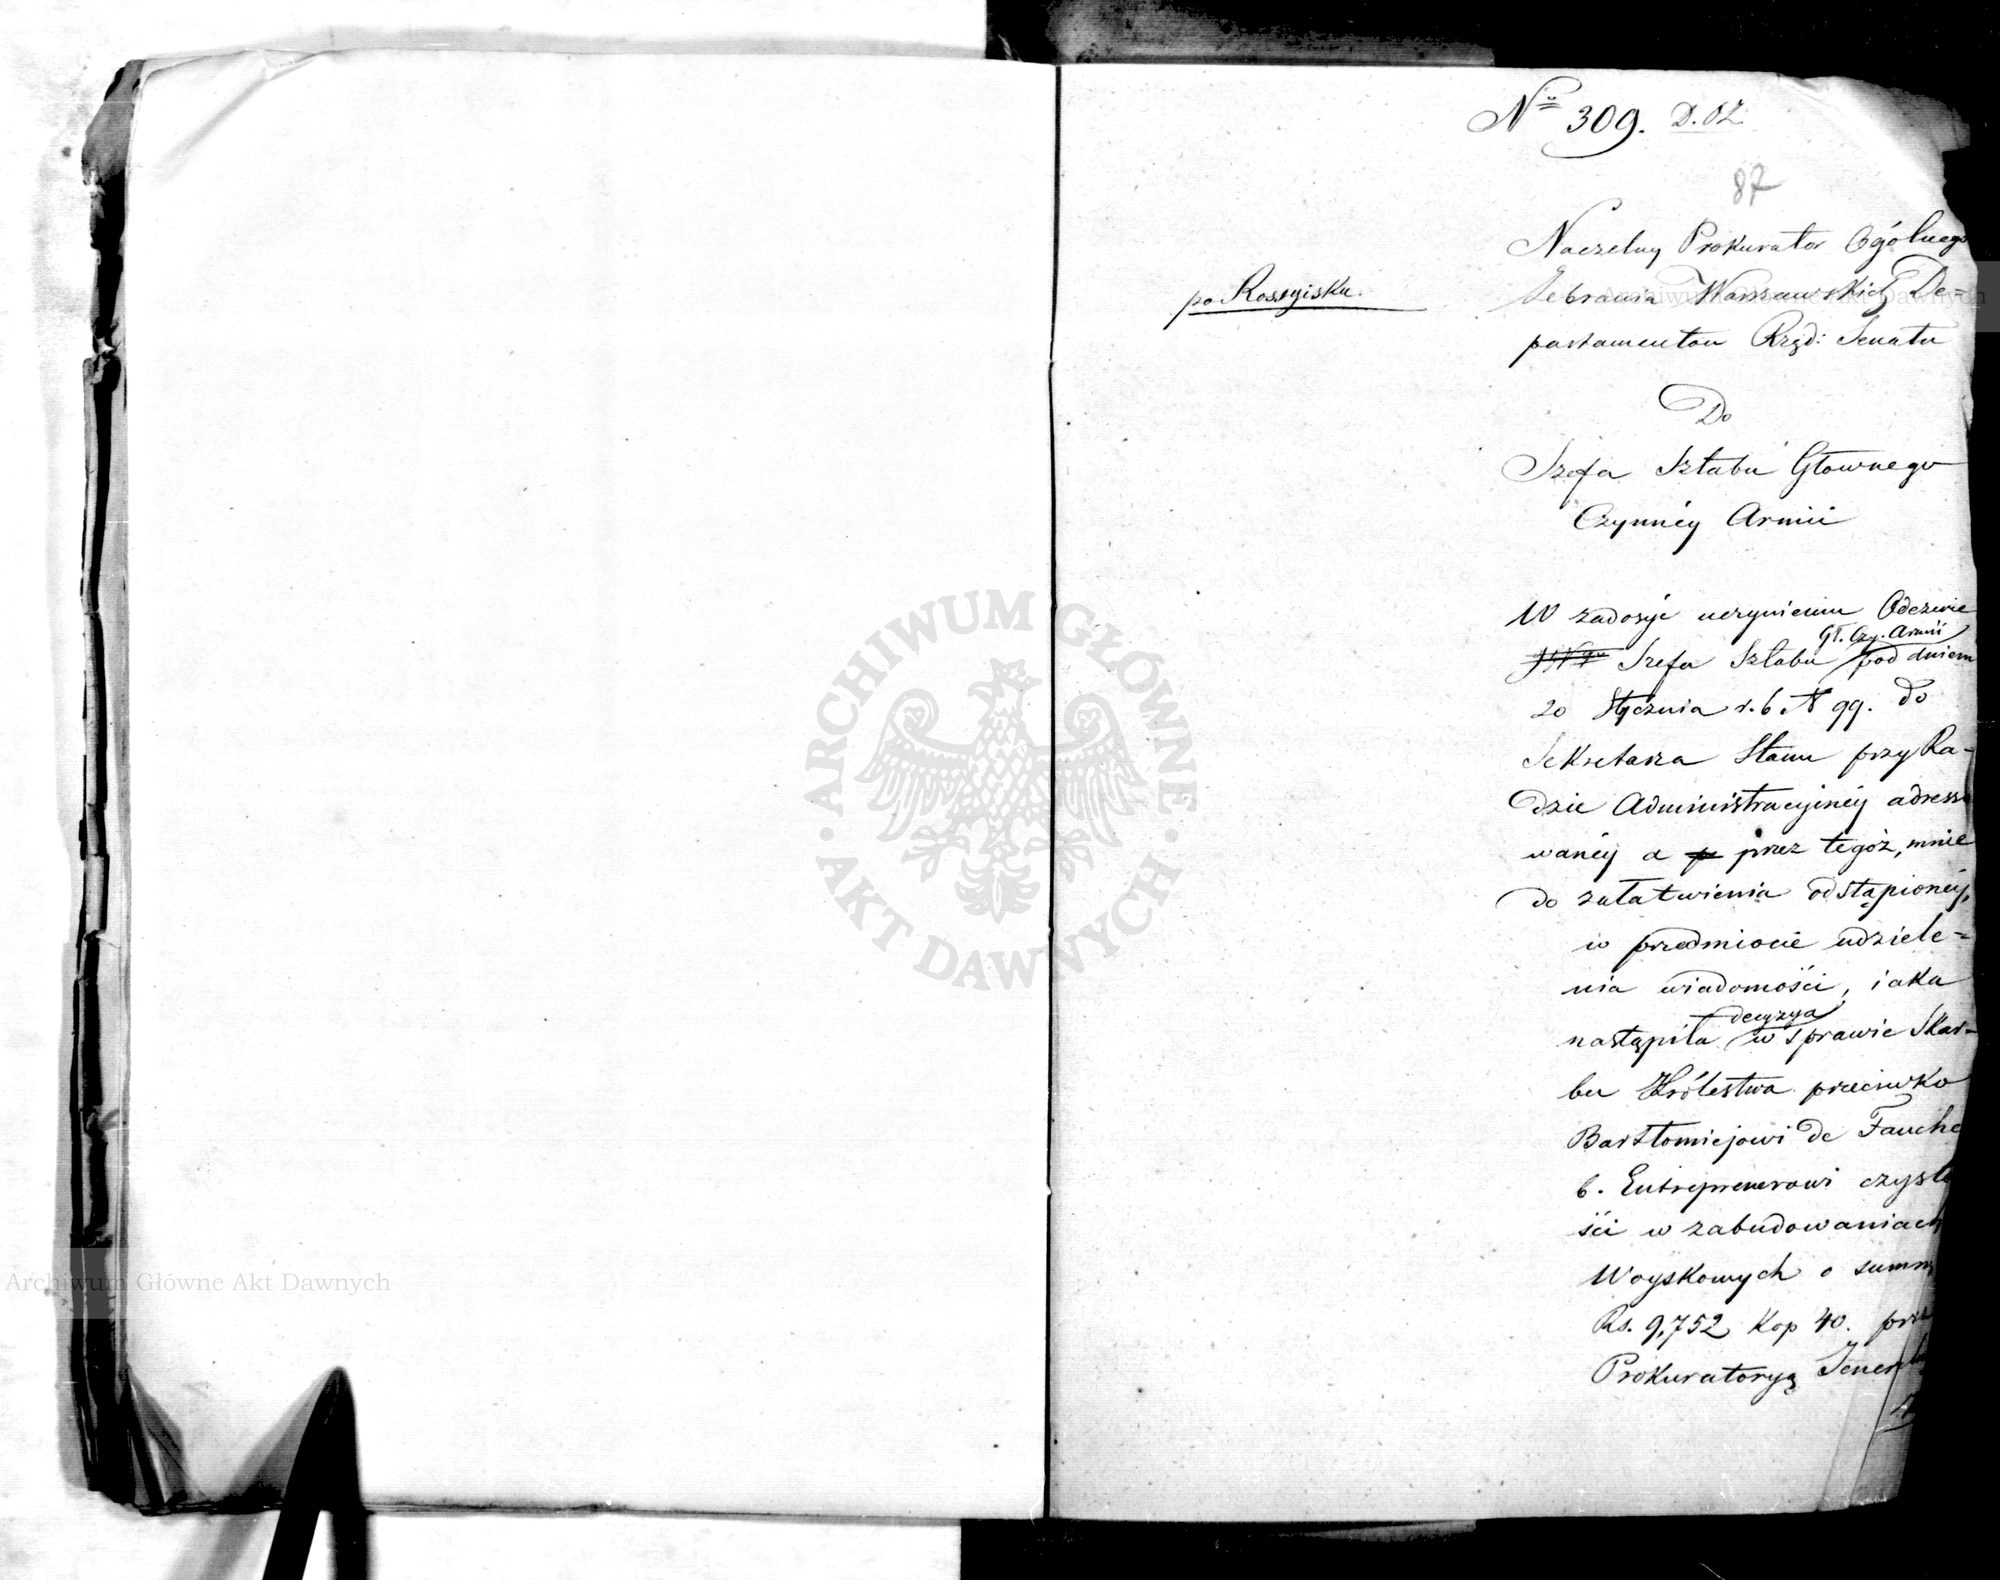 Nro 309. D.OZ.
87
Naczelny Prokurator Ogólnego
Zebrania Warszawskich De-
partamentow Rząd: Senatu
po Rossyisku.
Do
Szefa Sztabu Głownego
Czynnéy Armii
W zadosyć uczynieniu Odezwie
Gł. Czy. Armii
JW go Szefa Sztabu pod dniem
20 Stycznia r. b N 99. do
Sekretarza Stanu przy Ra-
dzie Administracyinéy adresso
wanéy a przez tegoż, mnie
do załatwienia odstąpionéy,
w przedmiocie udziele-
nia wiadomości, iaka
decyzya
nastąpiła w sprawie Skar-
bu Królestwa przeciwko
Bartłomiejowi de Fauche
b. Entreprenerowi czysto
ści w zabudowaniach
Woyskowych o summę
Rs. 9,752 Kop 40. prze
Prokuratoryą Jeneral
ARCHIWUM GŁÓWNE
AKT DAWNYCH
Archiwum Główne Akt Dawnych
Archiwum Główne Akt Dawnych